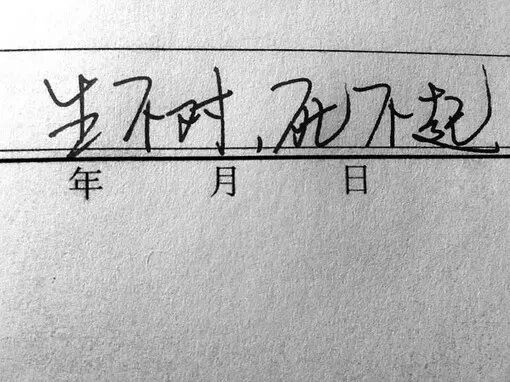 生不对,死不起
年 月 日